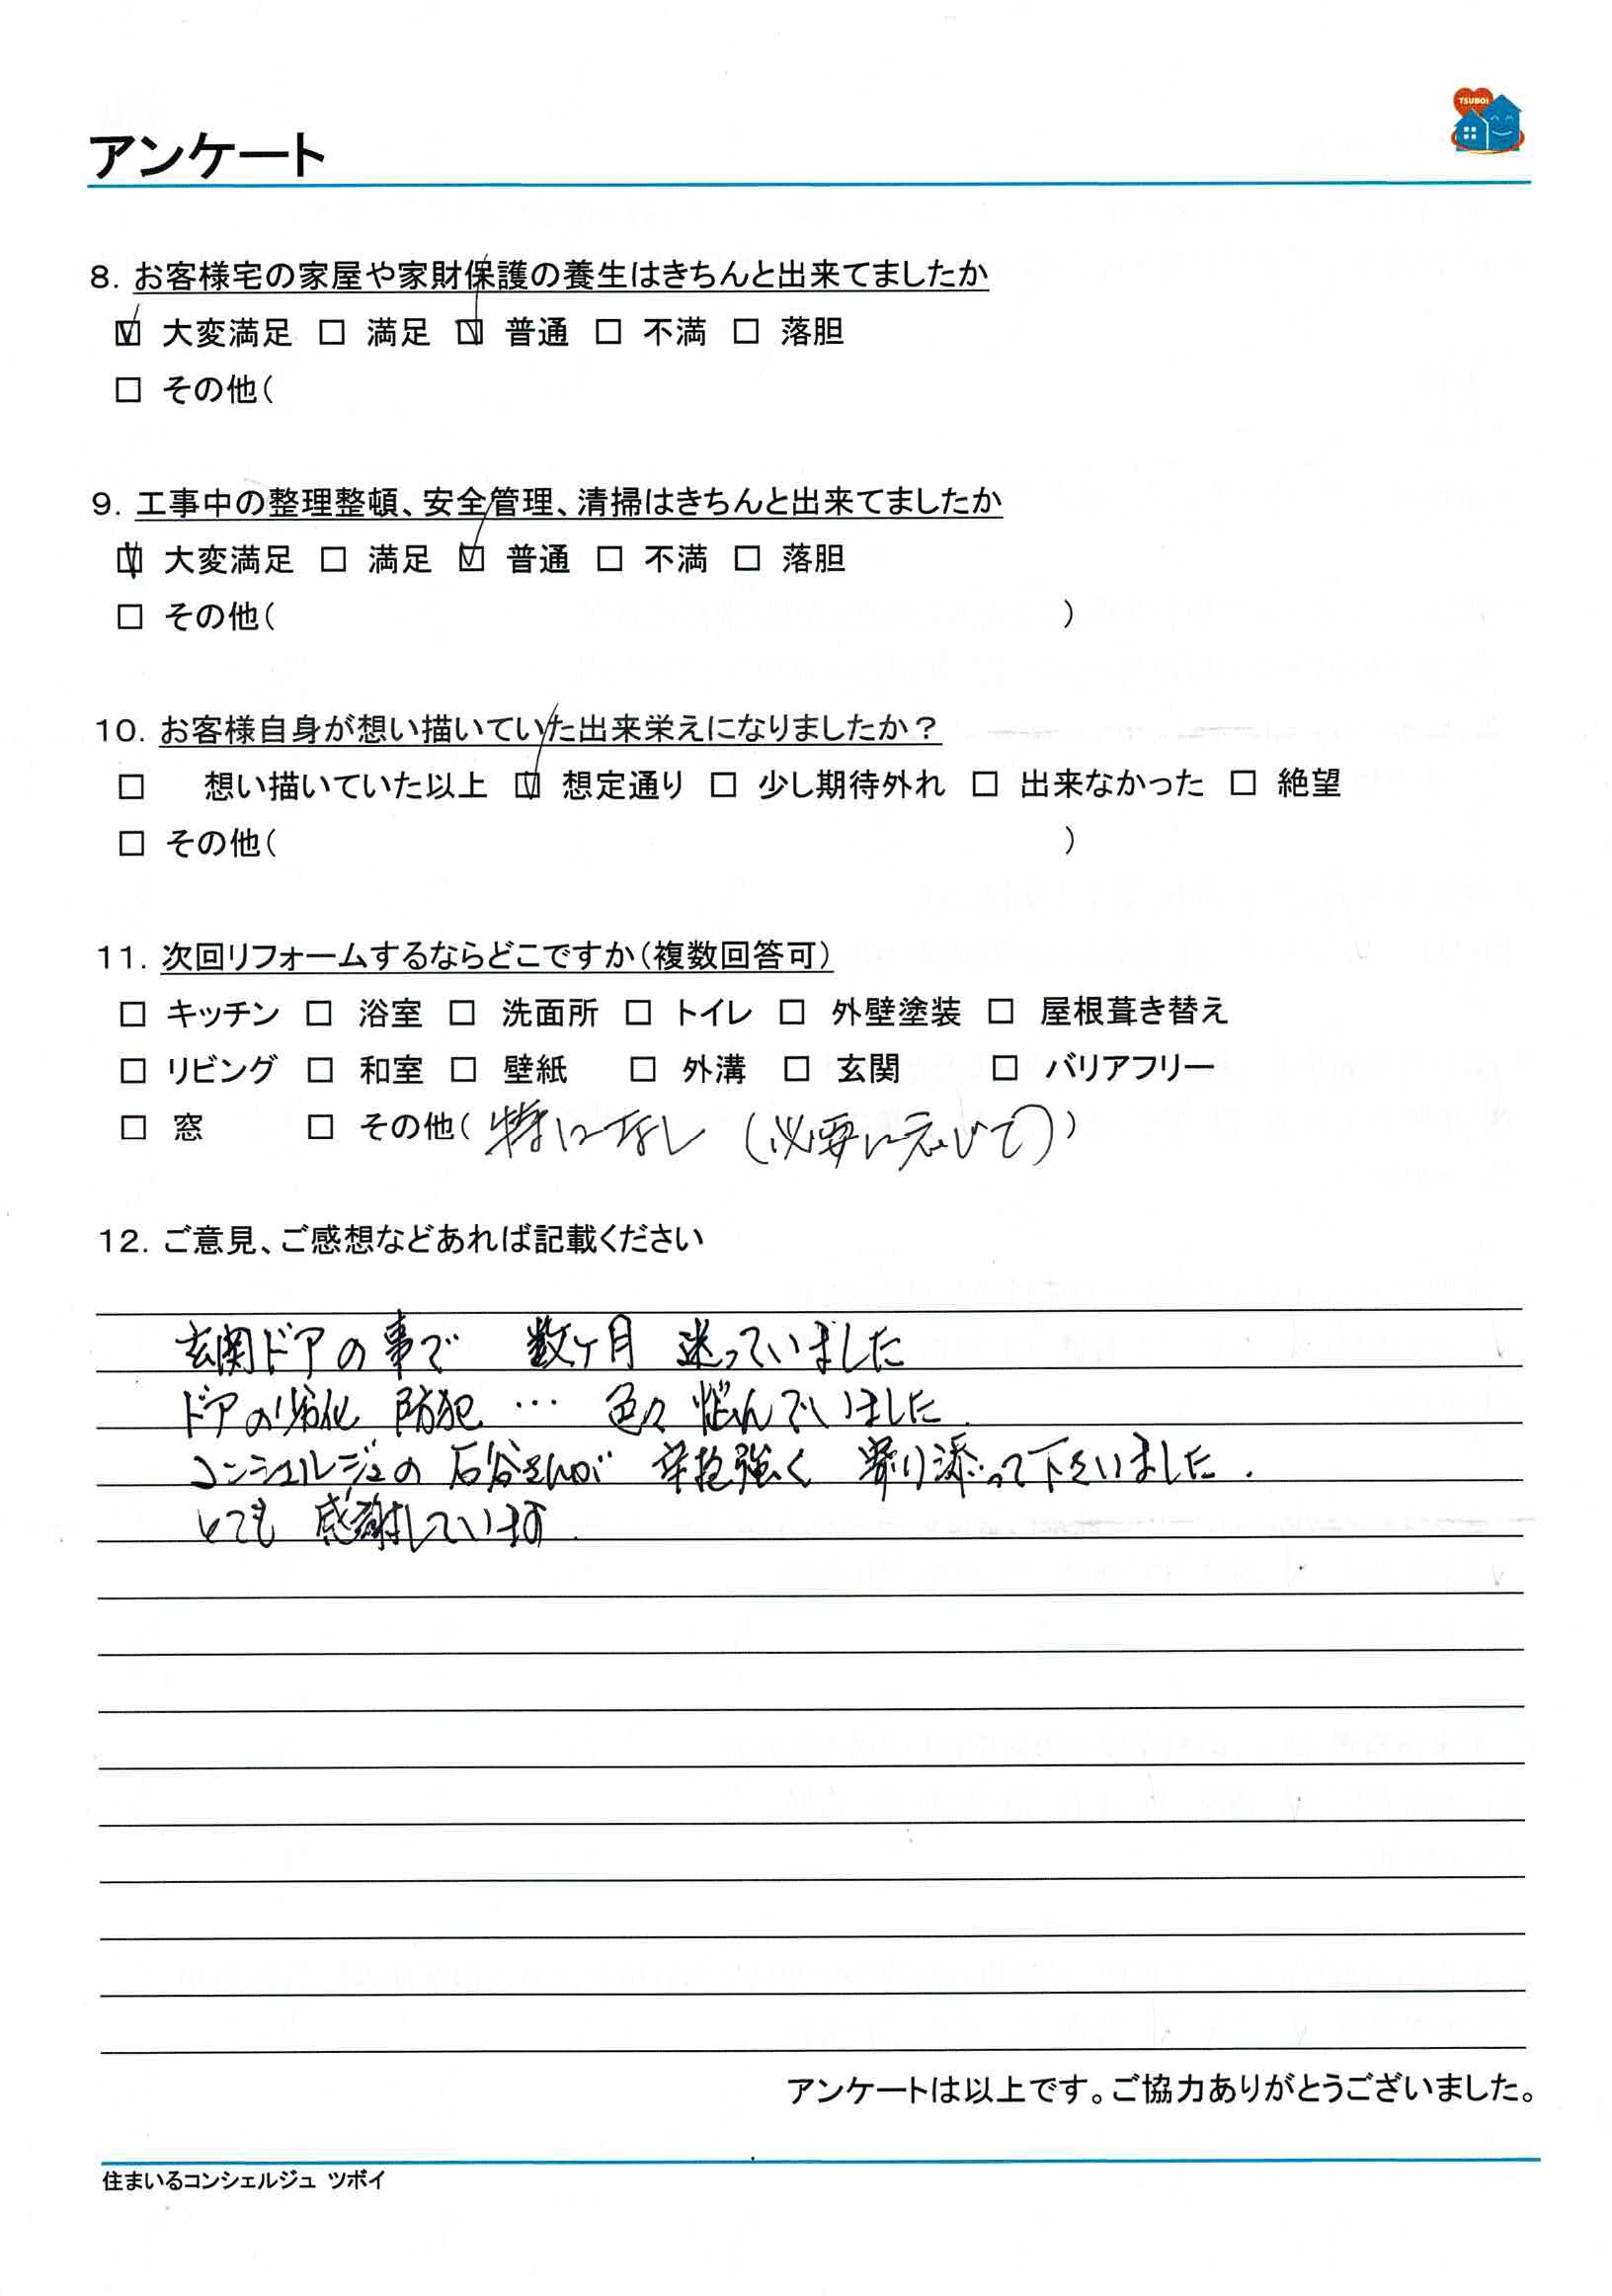 TSUBOI
アンケート
8. お客様宅の家屋や家財保護の養生はきちんと出来てましたか
☑ 大変満足 □ 満足 ☑ 普通 □ 不満 □ 落胆
□ その他(
9. 工事中の整理整頓、安全管理、清掃はきちんと出来てましたか
☑ 大変満足 □ 満足 ☑ 普通 □ 不満 □ 落胆
□ その他( )
10. お客様自身が想い描いていた出来栄えになりましたか？
□ 想い描いていた以上 ☑ 想定通り □ 少し期待外れ □ 出来なかった □ 絶望
□ その他( )
11. 次回リフォームするならどこですか(複数回答可)
□ キッチン □ 浴室 □ 洗面所 □ トイレ □ 外壁塗装 □ 屋根葺き替え
□ リビング □ 和室 □ 壁紙 □ 外溝 □ 玄関 □ バリアフリー
□ 窓 □ その他( 特になし (必要に応じて) )
12. ご意見、ご感想などあれば記載ください
玄関ドアの事で 数ヶ月 迷っていました
ドアの劣化 防犯 … 色々 悩んでいました.
コンシェルジュの 石谷さんが 辛抱強く 寄り添って下さいました.
とても 感謝しています.
アンケートは以上です。ご協力ありがとうございました。
住まいるコンシェルジュ ツボイ